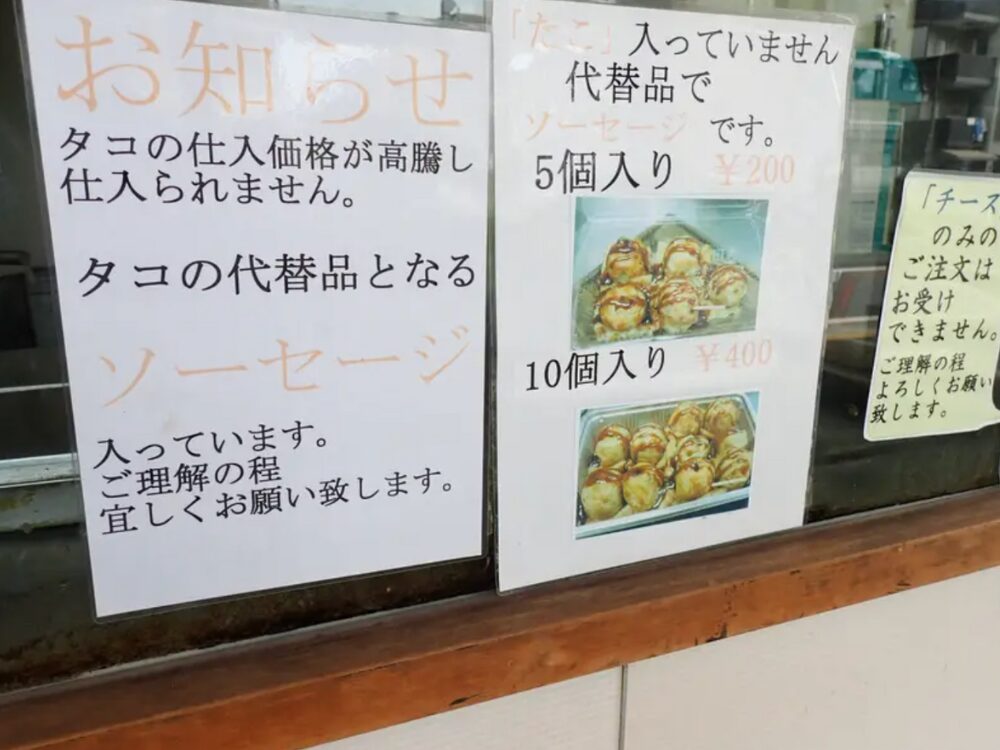 お知らせ
タコの仕入価格が高騰し
仕入られません。
タコの代替品となる
ソーセージ
入っています。
ご理解の程
宜しくお願い致します。
「たこ」入っていません
代替品で
ソーセージ です。
5個入り ￥200
10個入り ￥400
「チーズ
のみの
ご注文は
お受け
できません。
ご理解の程
よろしくお願い
致します。